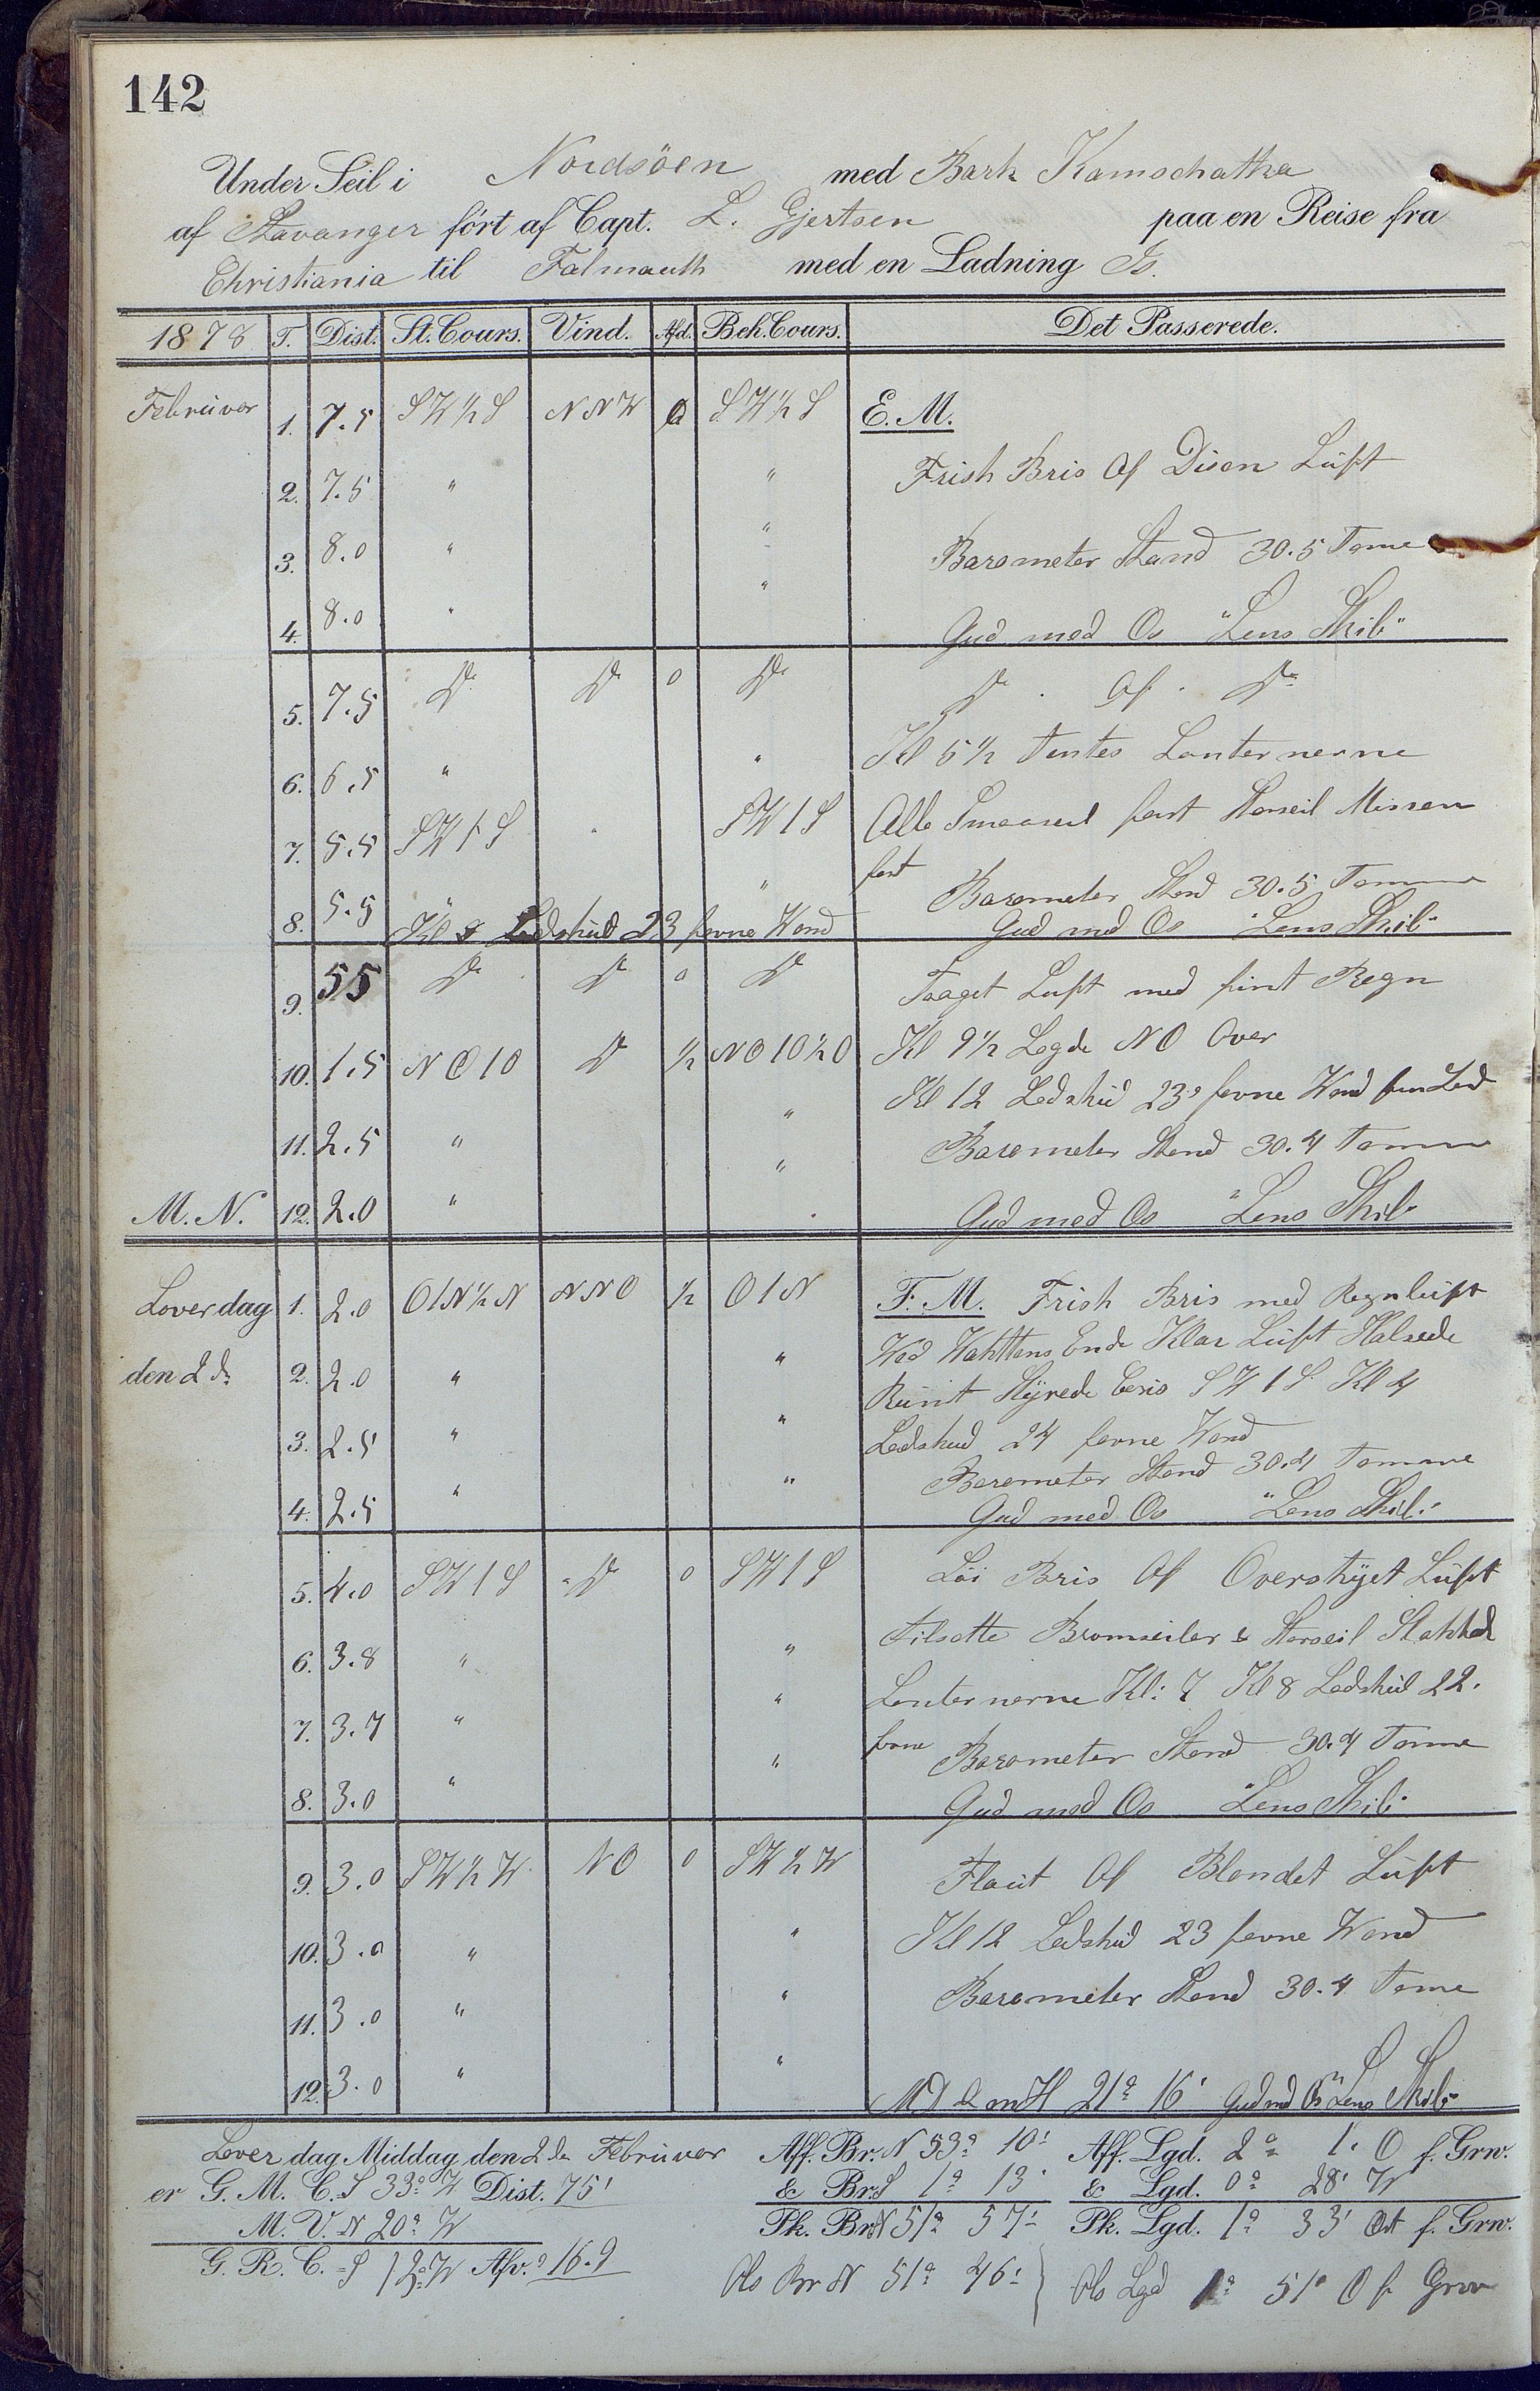 142
Under Seil i Nordsöen med Bark Kamschatka
af Stavanger ført af Capt. L. Gjertsen paa en Reise fra
Christiania til Falmauth med en Ladning Is.
1878 T. Dist. St. Cours. Vind. Afd. Beh. Cours. Det Passerede.
Februar 1. 7.5 SW½S NNW 0 SW½S E.M.
2. 7.5 " " Frisk Bris Of Disen Luft
3. 8.0 " " Barometer Stand 30.5 Tome
4. 8.0 " " Gud med Os "Lens Skib"
5. 7.5 Do Do 0 Do Do . Of . Do
6. 6.5 " " Kl 5½ Tentes Lanternerne
7. 5.5 SW1S " SW1S Alle Smaaseil fast Storseil Missen
fast
8. 5.5 " " Barometer Stand 30.5 Tomme
Kl 8 Lodskud 23 favne Wand Gud med Os "Lens Skib"
9. 55 Do Do 0 Do Taaget Luft med fint Regn
10. 1.5 NO10 Do ½ NO10½O Kl 9½ Legde NO Over
Kl 12 Lodskud 23 favne Wand
11. 2.5 " " Barometer Stand 30.4 Tomme
M.N. 12. 2.0 " " Gud med Os "Lens Skib"
Loverdag 1. 2.0 O1N½N NNO ½ O1N F.M. Frisk Bris med Regnluft
den 2de 2. 2.0 " " Wed Wakttens Ende Klar Luft Halsede
Runt Styrede SW1S Kl 4
3. 2.5 " " Lodskud 24 favne Wand
Barometer Stand 30.4 Tomme
4. 2.5 " " Gud med Os "Lens Skib"
5. 4.0 SW1S "Do 0 SW1S Löi Bris Of Overskyet Luft
6. 3.8 " " Tilsatte Bromseiler & Storseil Slakket
7. 3.7 " " Lanternerne Kl: 7 Kl 8 Lodskud 22.
favne Barometer Stand 30.4 Tomme
8. 3.0 " " Gud med Os "Lens Skib"
9. 3.0 SW½W NO 0 SW½W Flaut Of Blandet Luft
10. 3.0 " " Kl 12 Lodskud 23 favne Wand
11. 3.0 " " Barometer Stand 30.4 Tome
12. 3.0 " " 21° 16' Gud med Os "Lens Skib"
Loverdag Middag den 2de Februar Aff. Br. N 53° 10' Aff. Lgd. 2° 1' O f. Grw.
er G. M. C. S 33° W Dist. 75' & Br. S 1° 13' & Lgd. 0° 28' W
M. V. N 20° W Pk. Br. N 51° 57' Pk. Lgd. 1° 33' Ost f. Grw.
G. R. C. S 12° W Afv.° 16.9 Obs Br N 51° 46' Obs Lgd 1° 51' O f. Grw